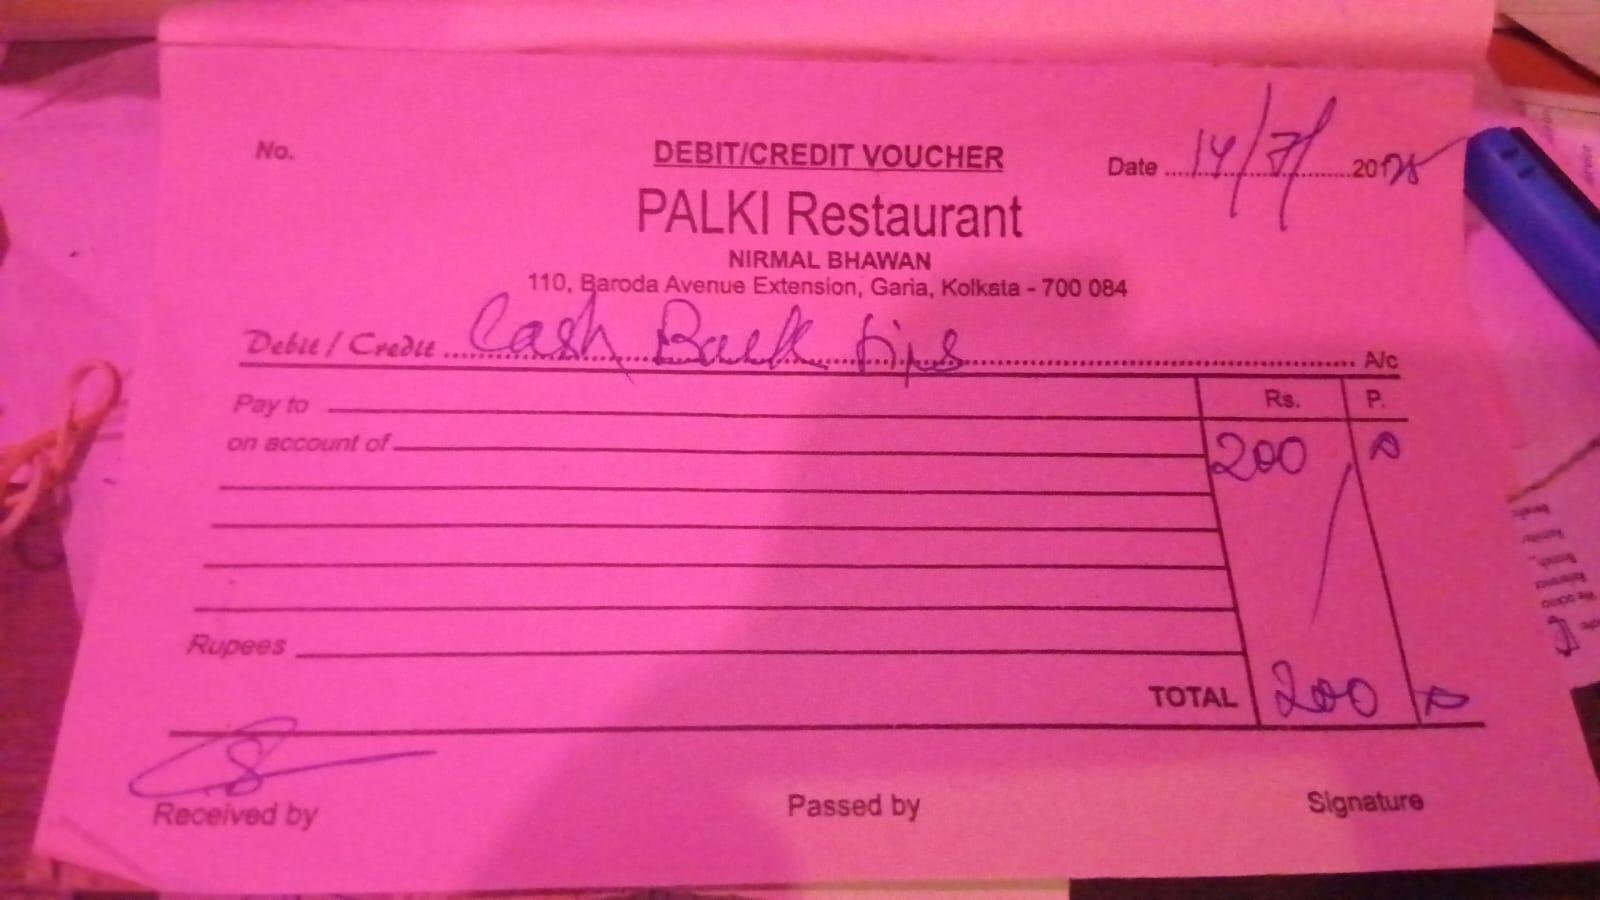 No.
DEBIT/CREDIT VOUCHER
Date 14/7/ 2025
PALKI Restaurant
NIRMAL BHAWAN
110, Baroda Avenue Extension, Garia, Kolkata - 700 084
Debit / Credit Cash Back tips A/c
Pay to Rs. P.
on account of 200
Rupees
TOTAL 200
Received by Passed by Signature